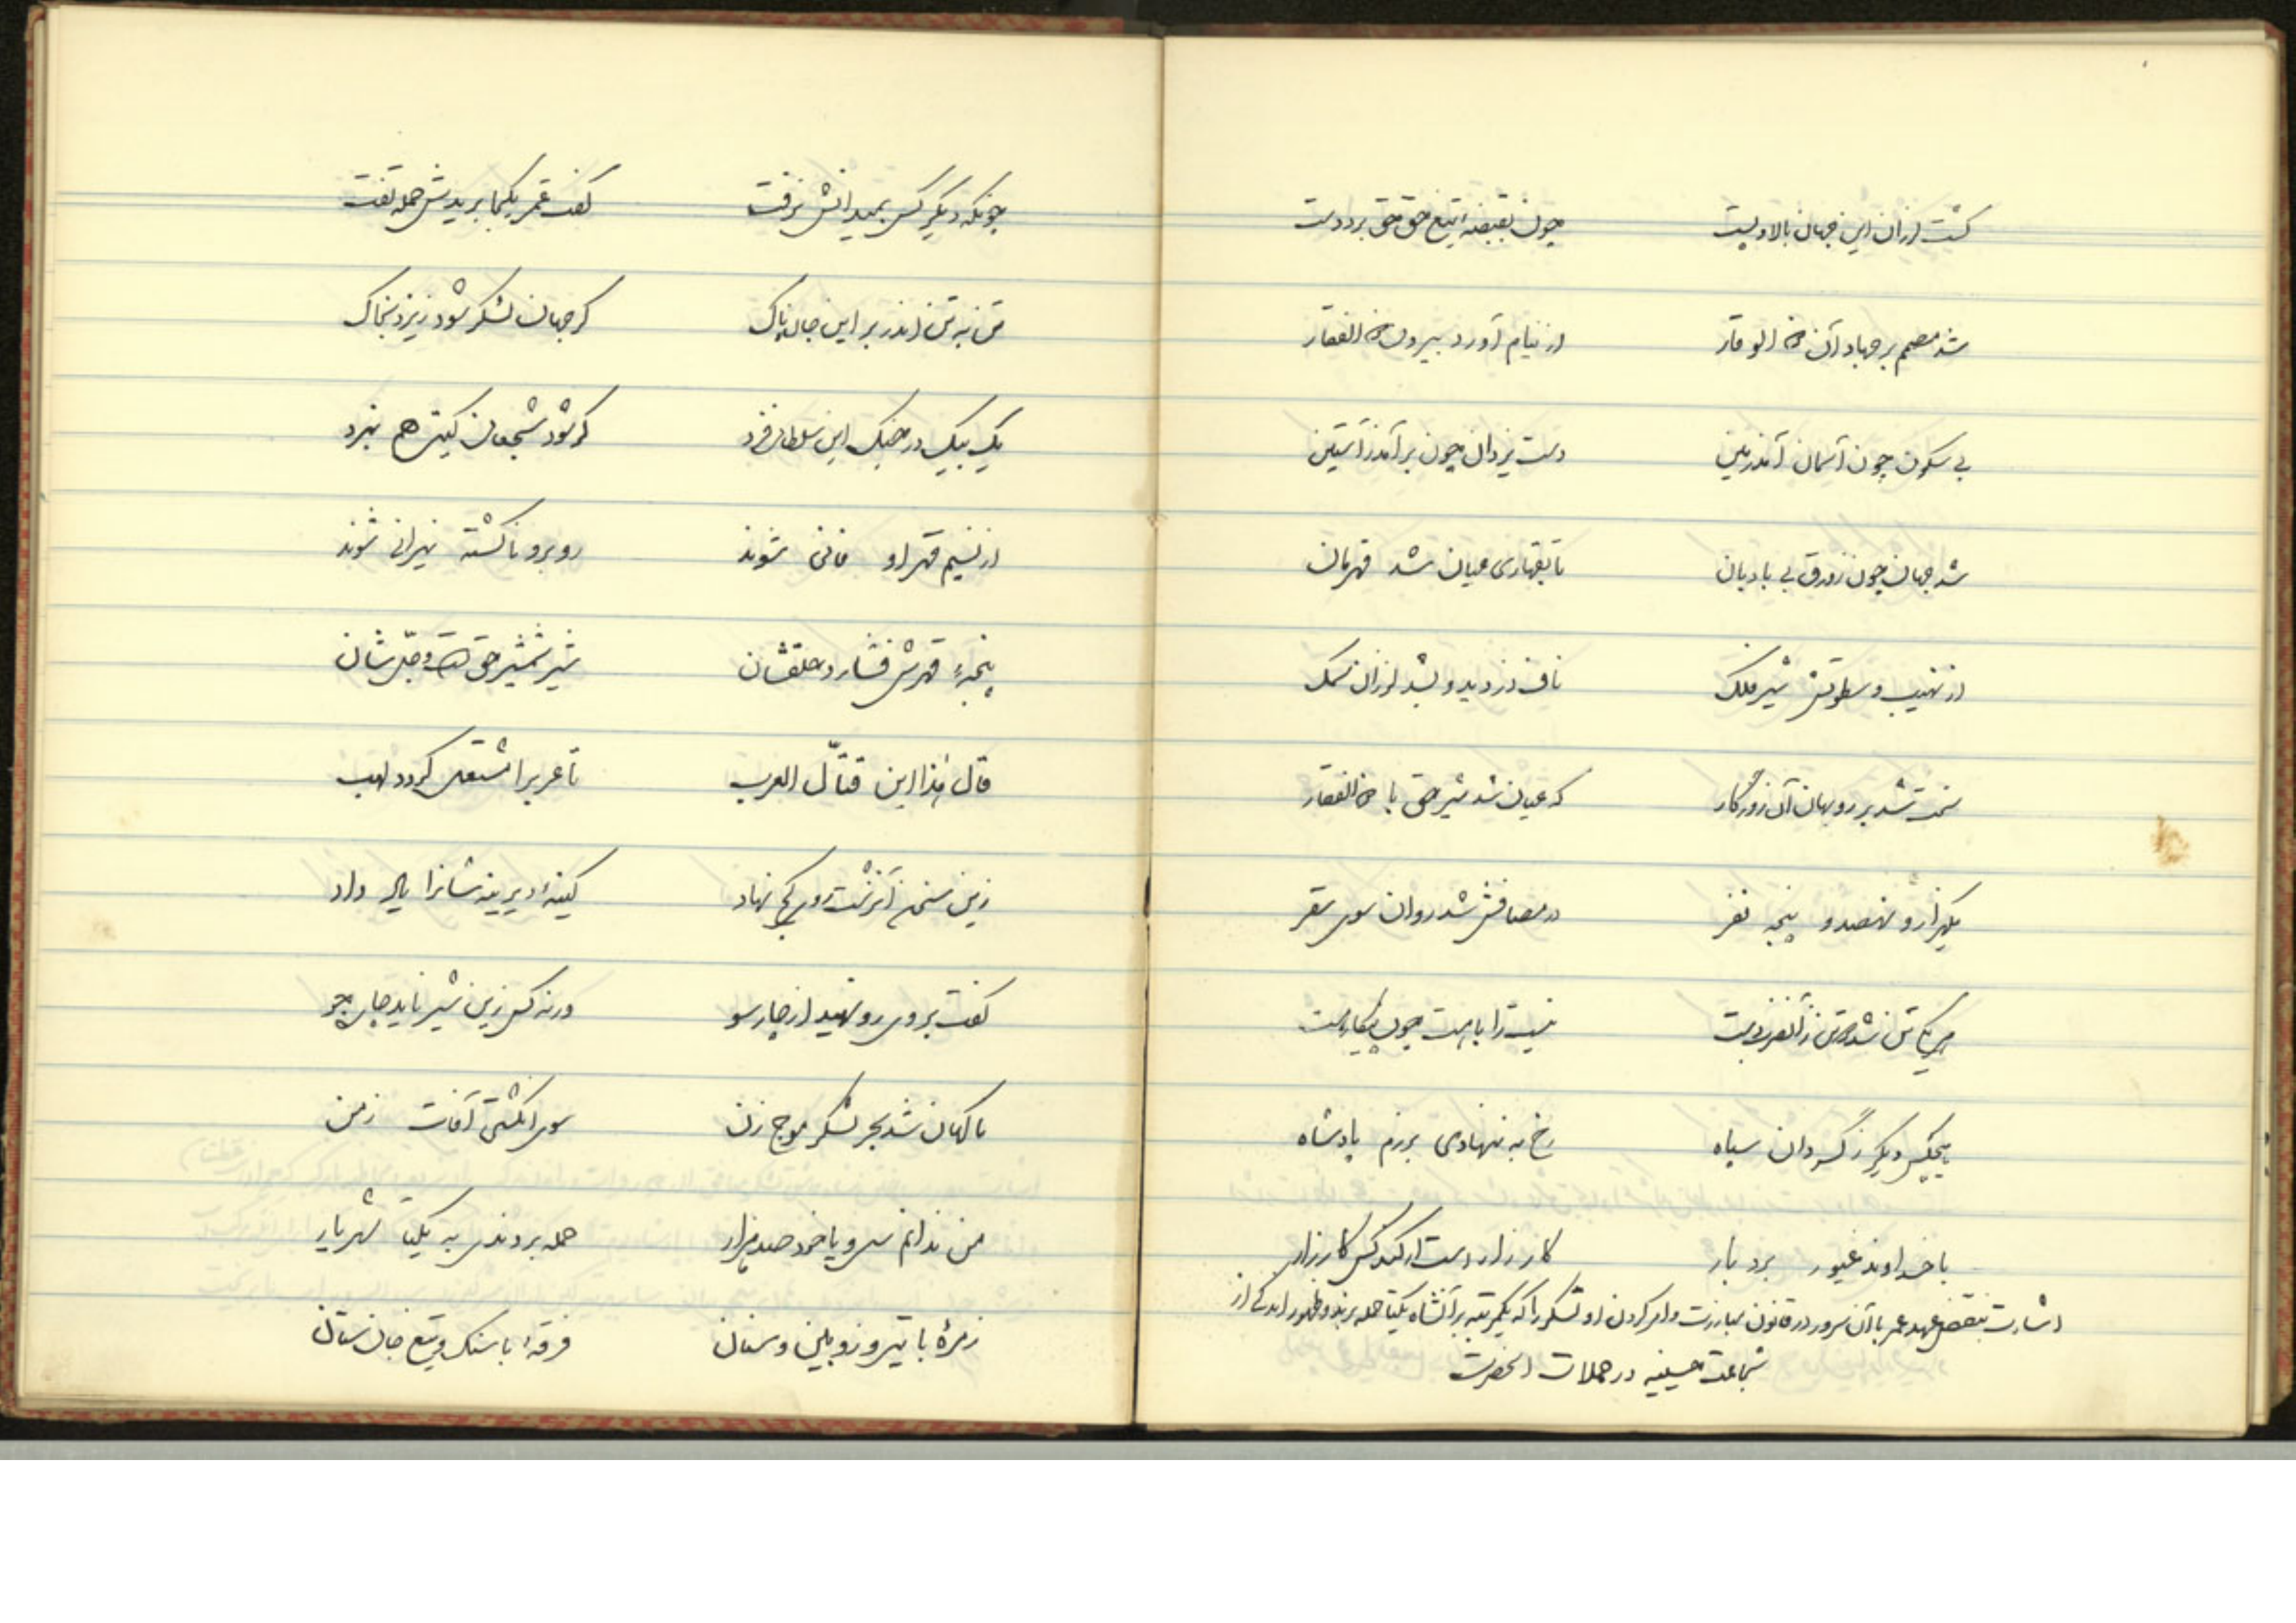 چون بقبضه تیغ حق حق برد دست گشت لرزان این جهان بالا و پست
شد مصمم بر جهاد آن ذو الوقار از نیام آورد بیرون ذو الفقار
دست یزدان چون بر آمد ز آستین بی سکون چون آسمان آمد زمین
تا بقهاری عیان شد قهرمان شد جهان چون زورق بی بادبان
از نهیب و سطوتش شیر فلک ناف دزدید و بشد لرزان سمک
سخت شد بر روبهان آن روزگار که عیان شد شیر حق با ذو الفقار
یکهزار و نهصد و پنجه نفر در مصافش شد روان سوی سقر
نیست را با هست چون پیکار هست
هیچکس دیگر ز گردان سپاه رخ به ننهادی برزم پادشاه
با خداوند غیور برد بار کار زار است ار کند کس کارزار
اشارت بنقض عهد عمر با آن سرور در قانون مبارزت و امر کردن او لشکر را که یکمرتبه بر آنشاه یکتا حمله برند و ظهور اندکی از
شجاعت حسینیه در حملات آنحضرت
چونکه دیگر کس بمیدانش نرفت گفت عمر یکجا برید حمله تفت
تن به تن اندر بر این جان پاک گر جهان لشکر شود ریزد بخاک
یک بیک در جنگ این سلطان فرد گر شود شجعان گیتی هم نبرد
از نسیم قهر او فانی شوند روبرو ناگشته نیرانی شوند
پنجهٔ قهرش فشارد حلقشان شیر شمشیر حق است و جدشان
قال هذا ابن قتّال العرب تا عرب را مشتعل گردد لهب
زین سخن آن زشت روی کج نهاد کینهٔ دیرینه شانرا یاد داد
گفت بر وی رو نهید از چار سو ورنه کس زین شیر ناید چاره جو
ناگهان شد بحر لشکر موج زن سوی کشتی آفات زمن
من ندانم سی و یا خود صد هزار حمله بردندی به یکتا شهریار
زمرهٔ با تیر و زوبین و سنان فرقهٔ با سنگ و تیغ جان ستان